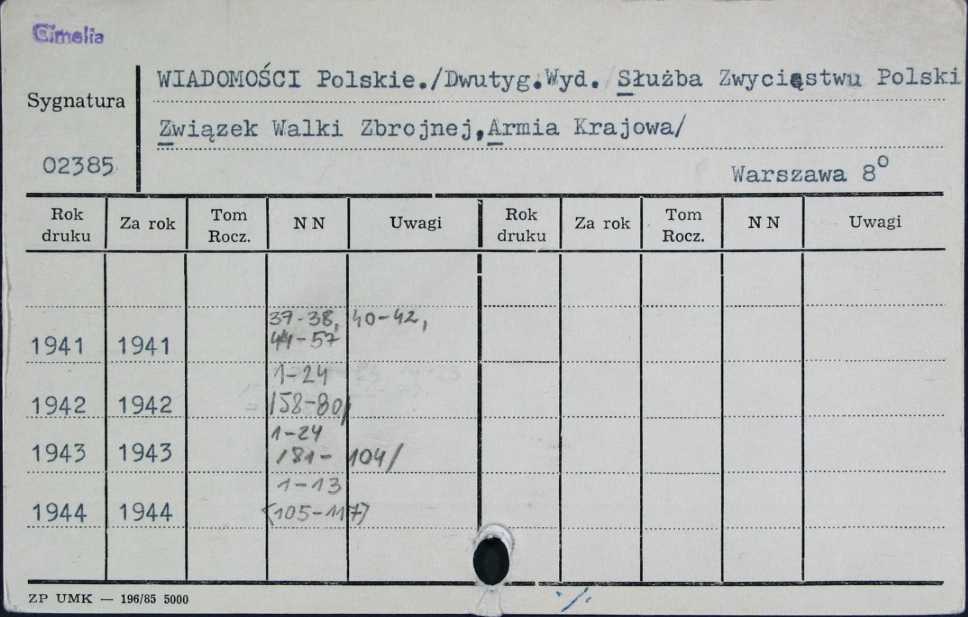 Cimelia
WIADOMOŚCI Polskie./Dwutyg.Wyd. Służba Zwycięstwu Polski
Sygnatura
Związek Walki Zbrojnej,Armia Krajowa/
02385
Warszawa 8°
Rok druku Za rok Tom Rocz. N N Uwagi Rok druku Za rok Tom Rocz. N N Uwagi
37-38, 40-42,
1941 1941 44-57
1-24
1942 1942 /58-80/
1-24
1943 1943 /81-104/
1-13
1944 1944 (105-117)
ZP UMK — 196/85 5000